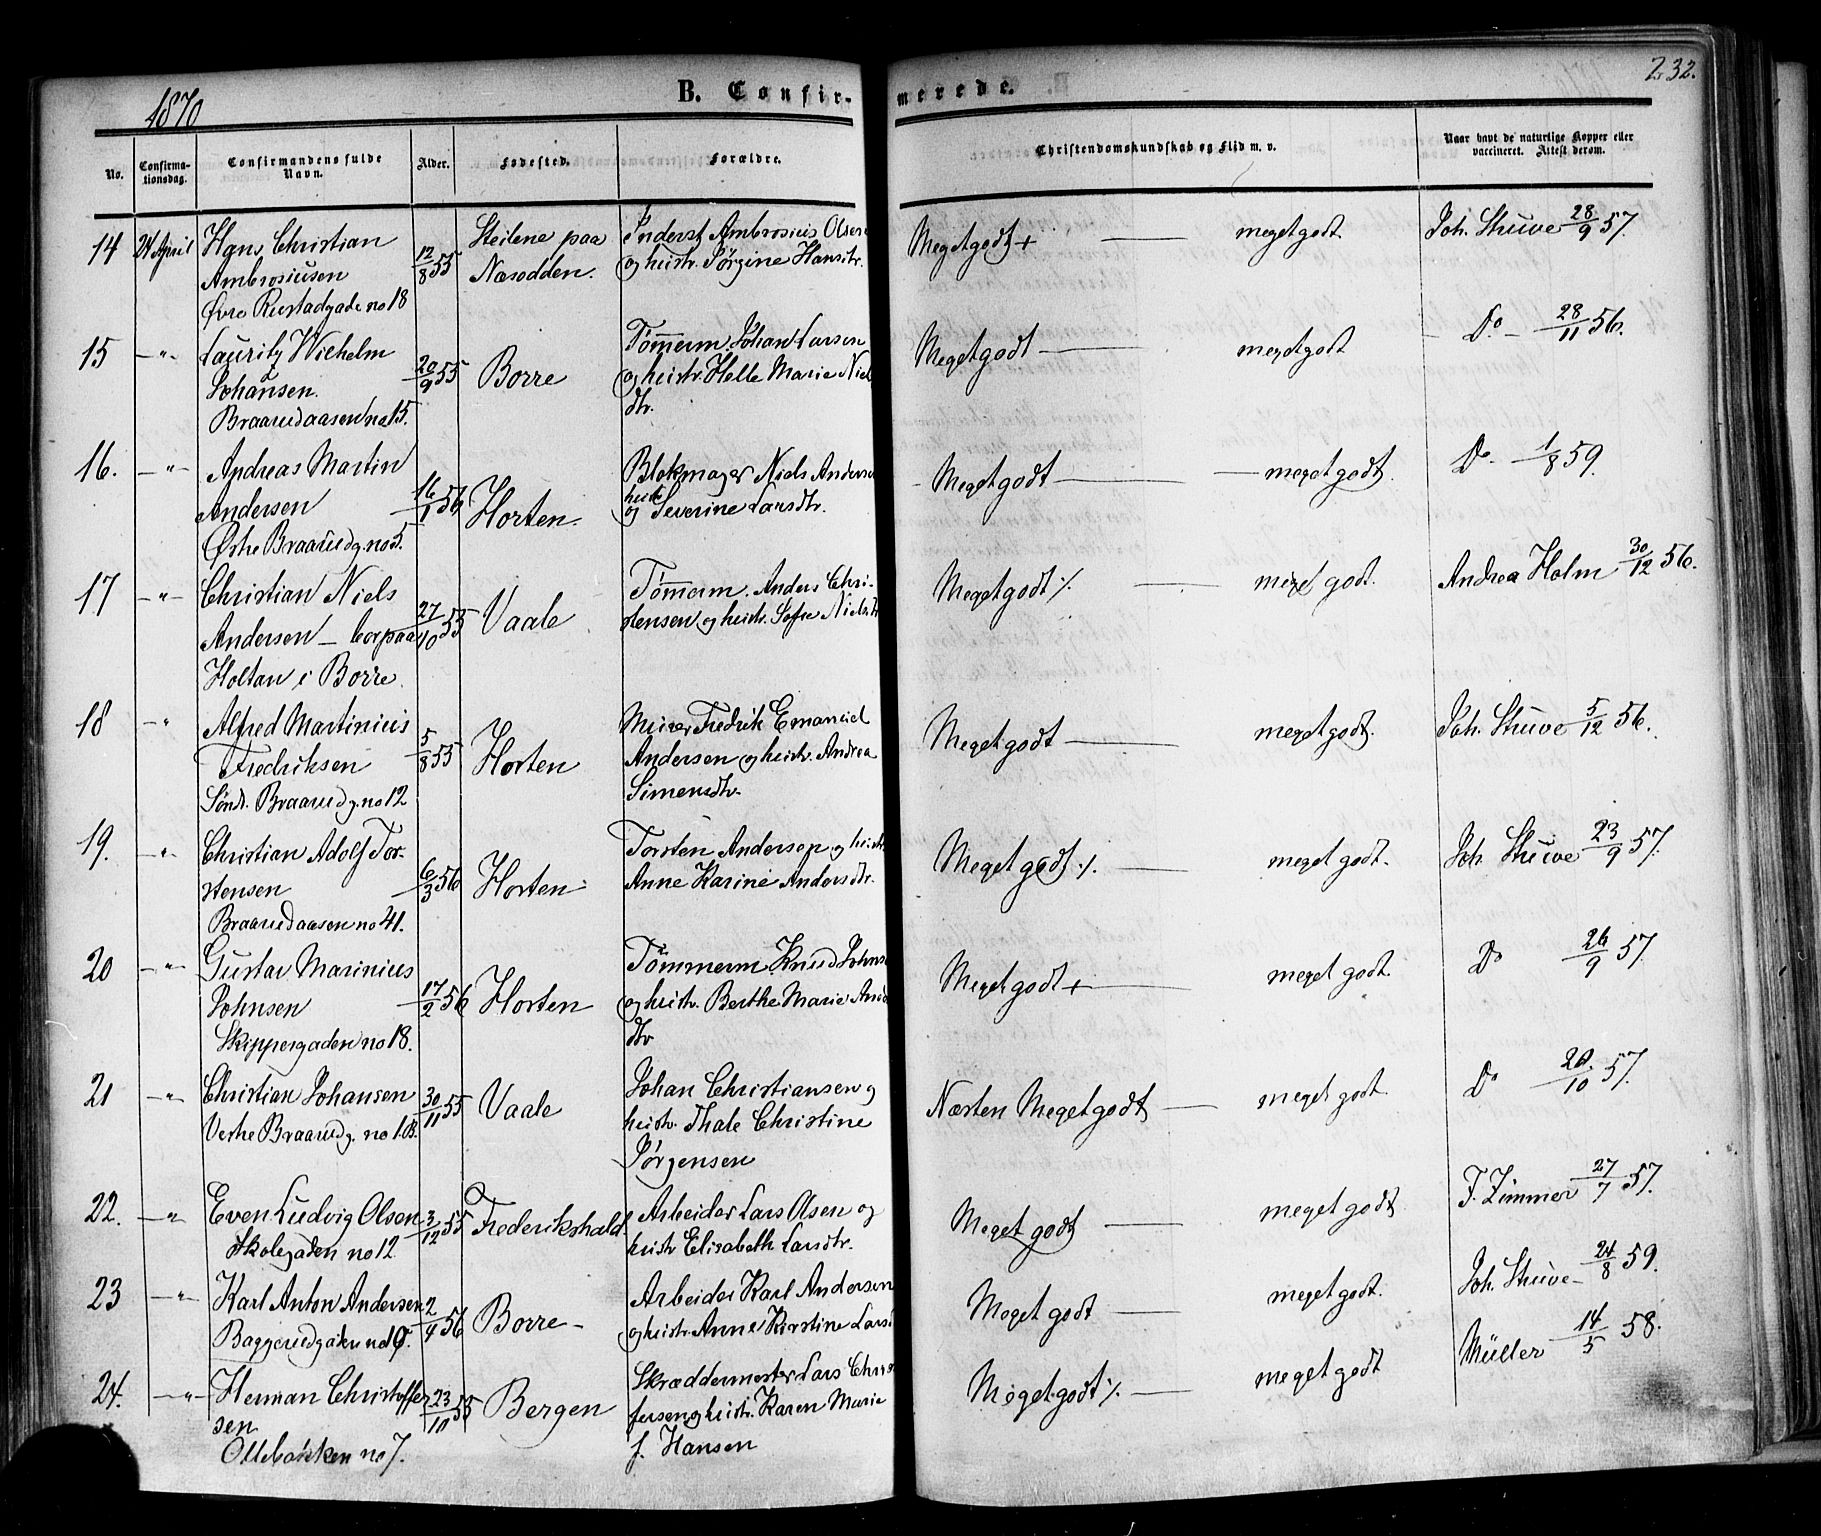 1870
B. Confirmerede.
232.
No.
Confirma-
tionsdag.
Confirmandens fulde
Navn.
Alder.
Fødested.
Forældre.
Christendomskundskab og Flid m. v.
Naar havt de naturlige Kopper eller
vaccineret. Attest derom.
14 24 April Hans Christian
Ambrosiusen
Øvre Rustadgade no 18
12/8 55
Steilene paa
Næsodden.
Inderst Ambrosius Olsen
og hustr. Jørgine Hansdtr.
Megetgodt + — megetgodt.
Joh. Stuve 28/9 57.
15 —"— Lauritz Wilhelm
Johansen.
Braarudaasen no 15.
20/9 55
Borre
Tømmerm Johan Larsen
og hustr. Helle Marie Niels
dtr.
Megetgodt — megetgodt
Do — 28/11 56.
16. —"— Andreas Martin
Andersen
Østre Braarudg. no 5.
16/1 56
Horten.
Blokmager Niels Anders
hustr
og Severine Larsdtr.
Megetgodt — megetgodt.
Do. 1/8 59.
17 —"— Christian Niels
Andersen — bor paa
Holtan i Borre.
27/10 55
Vaale
Tømmerm. Anders Chri-
stensen og hustr. Sofie Nielsdtr
Megetgodt ./. — meget godt.
Andrea Holm 30/12 56.
18 —" Alfred Martinius
Fredriksen
Søndr. Braarudg. no 12
5/8 55
Horten
Murer Fredrik Emanuel
Andersen og hustr. Andrea
Simensdtr.
Megetgodt — megetgodt.
Joh. Stuve 5/12 56.
19. —"— Christian Adolf Tor-
stensen
Braarudaasen no 41.
6/3 56
Horten
Torsten Andersen og hustr
Anne Karine Andersdtr.
Meget godt ./. — meget godt.
Joh Stuve 23/9 57.
20 —"— Gustav Marinius
Johnsen
Skippergaden no 18.
17/2 56
Horten
Tømmerm Knud Johns
og hustr. Berthe Marie And
dtr
Megetgodt + — meget godt.
Do 26/9 57.
21 —"— Christian Johansen
Vestre Braarudg. no 1.B.
30/11 55
Vaale
Johan Christiansen og
hustr. Thale Christine
Jørgensen
Næsten Megetgodt — meget godt.
Do 20/10 57.
22. —"— Even Ludvig Olsen
Skolegaden no 12
3/12 55
Frederikshald.
Arbeider Lars Olsen og
hustr Elisabeth Larsdtr.
Meget godt — meget godt.
F. Zimmer 27/7 57.
23 —"— Karl Anton Andersen
Baggerudgaden no 19.
2/4 56
Borre —
Arbeider Karl Andersen
og hustr. Anne Kirstine Lars
Meget godt — meget godt.
Joh. Stuve 24/8 59.
24. —"— Herman Christoffer
sen
Ollebakken no 7.
23/10 55
Bergen
Skræddermester Lars Chris
fersen og hustr. Karen Marie
f. Hansen
Meget godt ./. — meget godt
Müller 14/5 58.